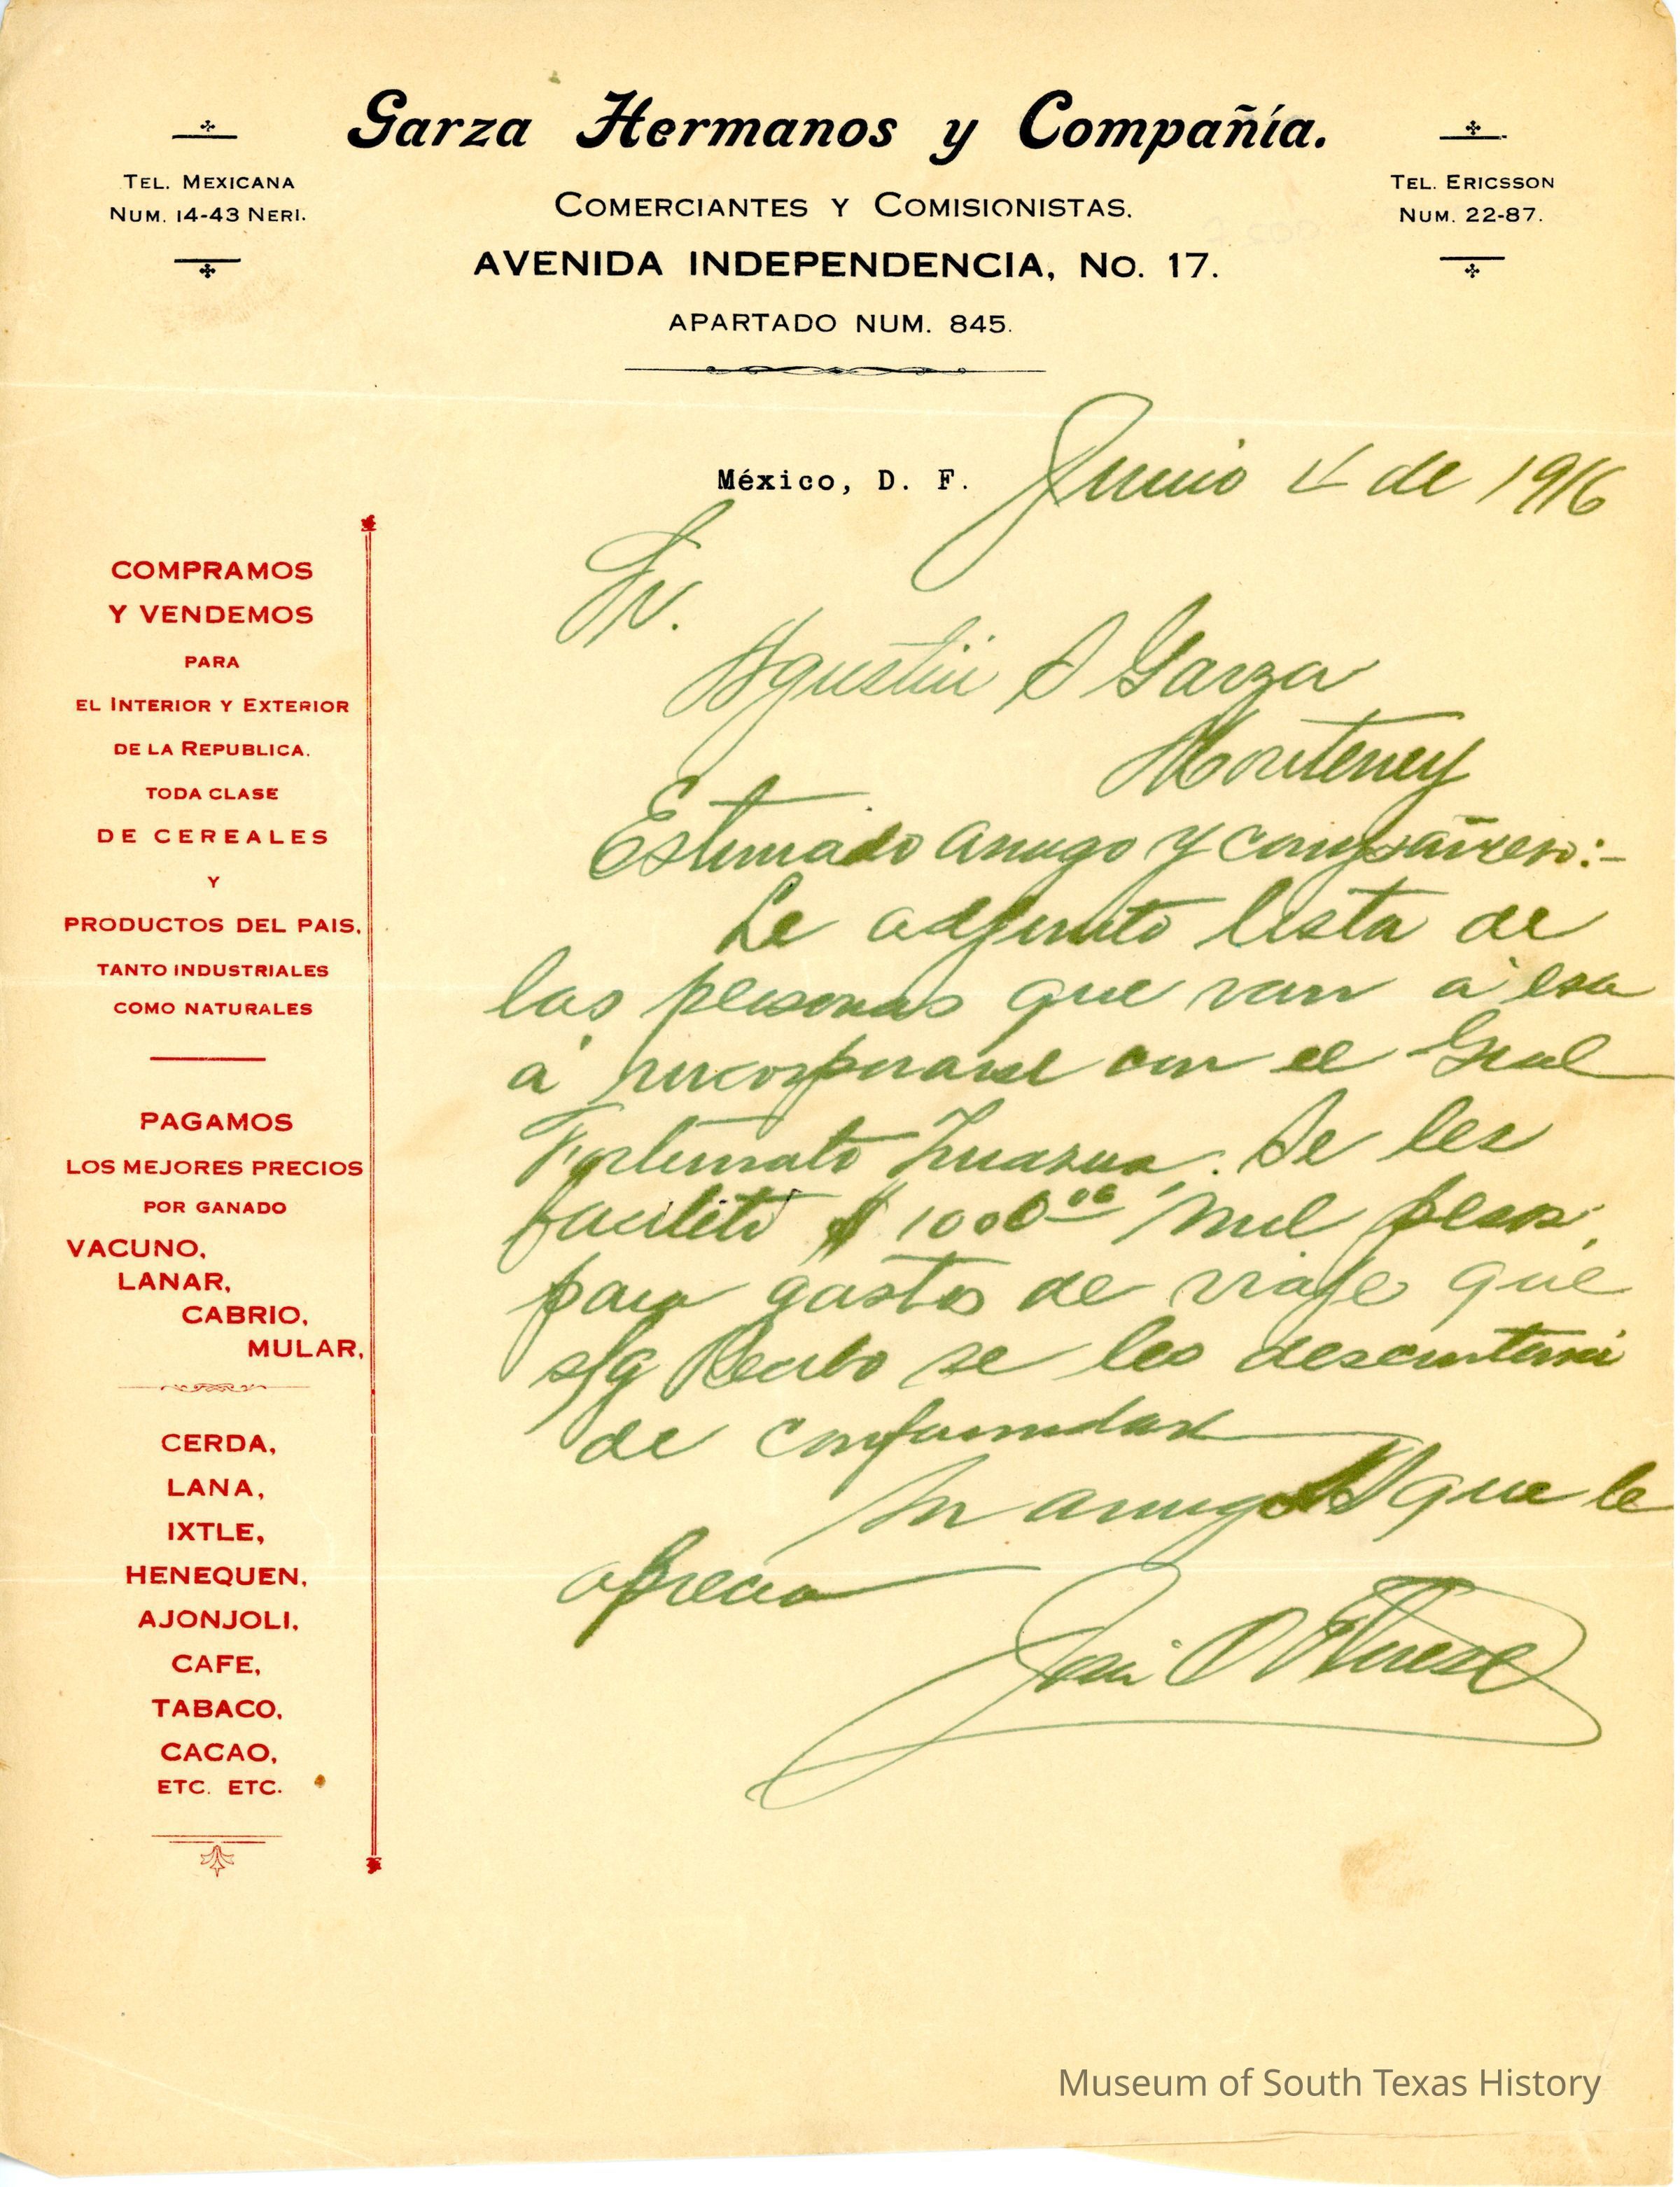 Garza Hermanos y Compañía.
TEL. MEXICANA
NUM. 14-43 NERI.
COMERCIANTES Y COMISIONISTAS.
TEL. ERICSSON
NUM. 22-87.
AVENIDA INDEPENDENCIA, No. 17.
APARTADO NUM. 845.
México, D. F. Junio 4 de 1916
COMPRAMOS
Y VENDEMOS
PARA
EL INTERIOR Y EXTERIOR
DE LA REPUBLICA.
TODA CLASE
DE CEREALES
Y
PRODUCTOS DEL PAIS,
TANTO INDUSTRIALES
COMO NATURALES
PAGAMOS
LOS MEJORES PRECIOS
POR GANADO
VACUNO,
LANAR,
CABRIO,
MULAR,
CERDA,
LANA,
IXTLE,
HENEQUEN,
AJONJOLI,
CAFE,
TABACO,
CACAO,
ETC. ETC.
Sr.
Agustin S Garza
Monterrey
Estimado amigo y compañero:-
Le adjunto lista de
las personas que van á esa
á incorporarse con el Gral
Fortunato Zuazua. Se les
facilitó $ 1000 00 mil pesos,
para gastos de viaje que
s/g Recibo se les descontará
de conformidad
Su amigo que le
aprecia
José
Museum of South Texas History